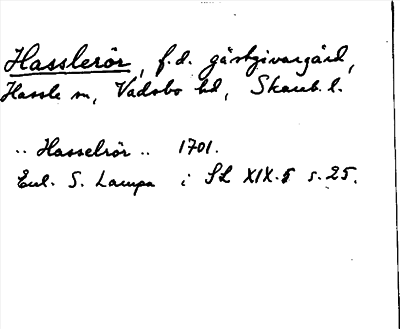 Hasslerör, f.d. gästgivaregård,
Hassle sn, Vadsbo hd, Skarab. l.
.. Hasselrör .. 1701.
Enl. S. Lampa i SL XIX.5 s. 25.